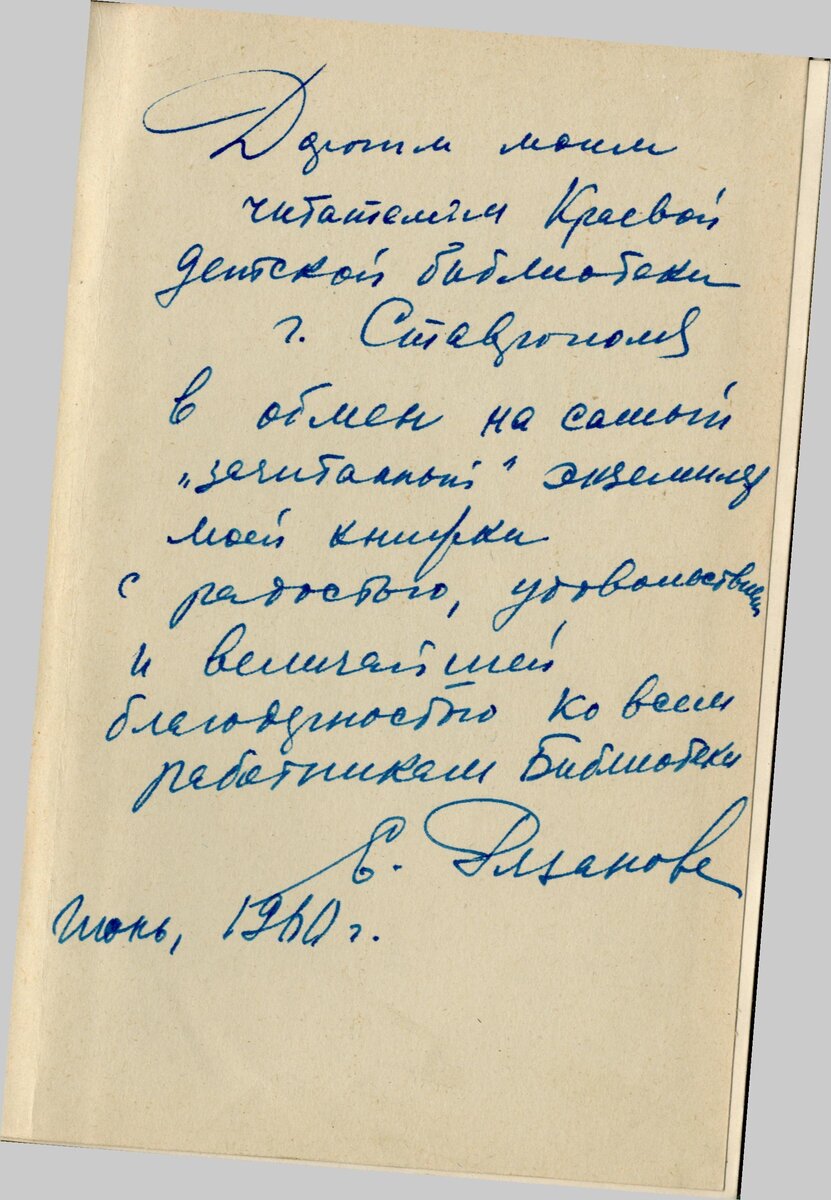 Дорогим моим
читателям Краевой
детской библиотеки
г. Ставрополя
в обмен на самый
„зачитанный" экземпляр
моей книжки
с радостью, удовольствием
и величайшей
благодарностью ко всем
работникам Библиотеки
Е. Рязанова
Июнь, 1960 г.